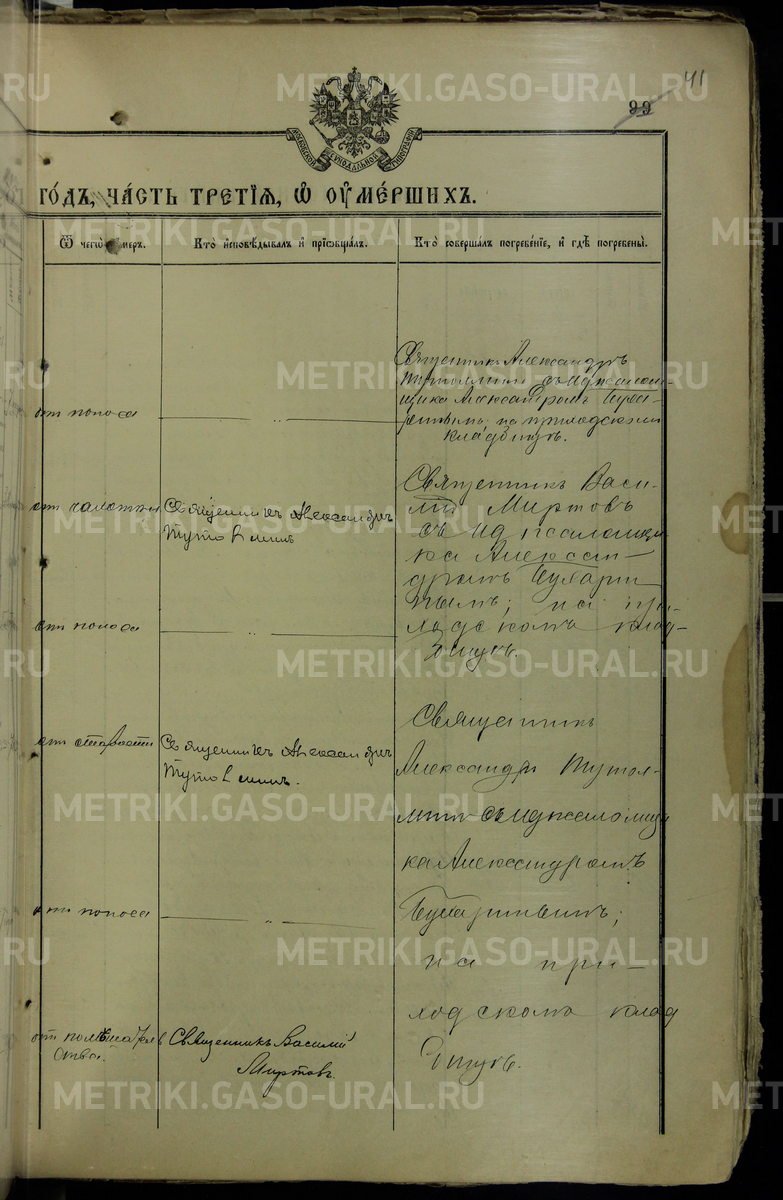 41
99
МОСКОВСКОЙ СѴНОДАЛЬНОЙ ТИПОГРАФІИ
ГО́ДЪ, ЧА́СТЬ ТРЕТІѦ, Ѽ ОУМЕ́РШИХЪ.
Ѿ чегѡ̀ оумеръ.
Кто̀ и҆сповѣ́дывалъ и҆ прїѡбща́лъ.
Кто̀ соверша́лъ погребе́нїе, и҆ гдѣ̀ погребены̀.
Священникъ Александръ
Тутолминъ съ ид псалом-
щика Александромъ Буха-
ринымъ; на приходскомъ
кладбищѣ.
отъ поноса
отъ чахотки
Священникъ Александръ
Тутолминъ
Священникъ Васи-
лій Миртовъ
съ ид псаломщи
ка Алексан-
дромъ Бухарин
нымъ; на при-
ходскомъ клад-
бищѣ.
отъ поноса
отъ старости
Священникъ Александръ
Тутолминъ.
Священникъ
Александръ Тутол-
минъ съ ид псаломщи
ка Александромъ
Бухаринымъ;
на при-
ходскомъ клад
бищѣ.
отъ поноса
отъ помѣшатель
ства.
Священникъ Василій
Миртовъ.
METRIKI.GASO-URAL.RU